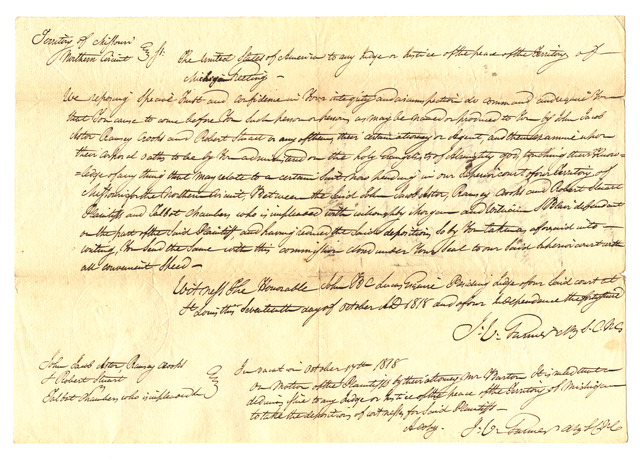 Territory of Missouri
Northern Circuit } ss:
The United States of America to any Judge or Justice of the peace of the Territory of
Michigan Greeting –
We reposing Special Trust and confidence in Your integrity and circumspection do command and require You
that You cause to come before You Such person or persons as may be named or produced to You by John Jacob
Astor Ramsey Crooks and Robert Stuart or any of them, their certain attorney or Agent, and them examine upon
their corporal oaths to be by You administered on the holy Evangelists of Almighty god, touching their Know-
=ledge of any thing that may relate to a certain Suit, now pending in our Superior court of our Territory of
Missouri for the Northern Circuit, Between the Said John Jacob Astor, Ramsey Crooks and Robert Stuart
Plaintiffs and Talbot Chambers who is impleaded with Willoughby Morgan and William S Blair defendant
on the part of the Said Plaintiffs and having reduced the Said depositions, so by You taken as aforesaid into
writing, You Send the Same with this commission closed under Your Seal to our Said Superior court with
all convenient Speed –
Witness The Honorable John B C Lucas Esquire Presiding Judge of our Said court at
St Louis this Seventeenth day of October AD 1818 and of our Independence the forty third
J. V. Garnier
John Jacob Astor, Ramsey Crooks
& Robert Stuart
Talbot Chambers, who is impleaded &
In vacation October 17th 1818
On Motion of the Plaintiffs by their attorney Mr Barton It is ruled that a
dedimus issue to any Judge or Justice of the peace of the Territory of Michigan
to take the depositions of witnesses for Said Plaintiffs –
A Copy. J. V. Garnier